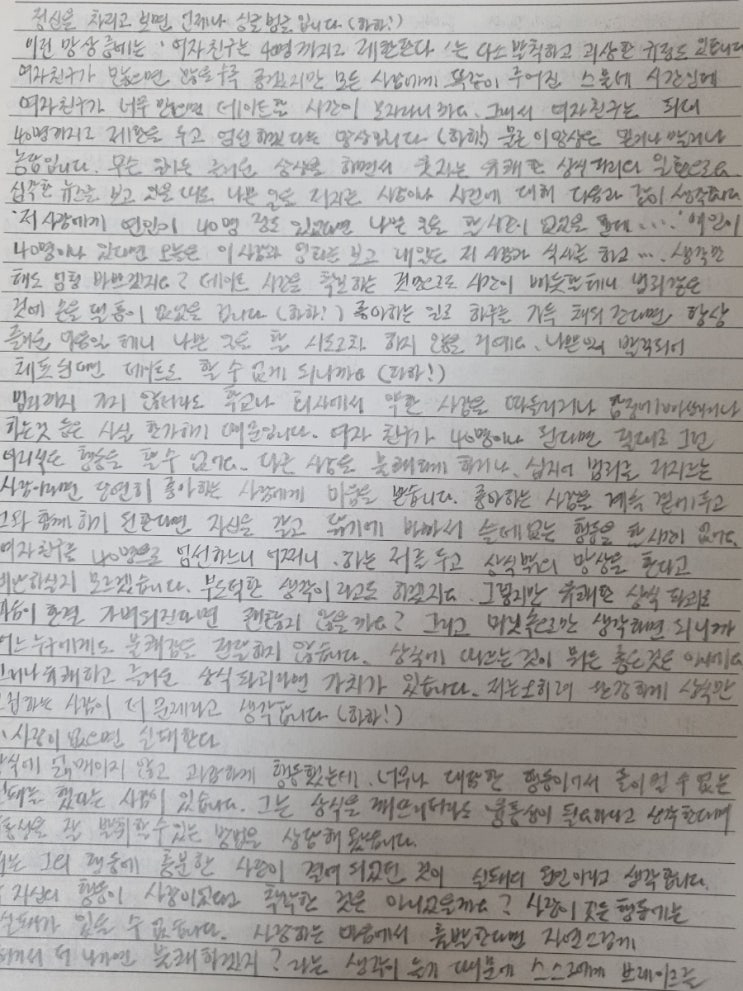 정신을 차리고 보면 언제나 싱글벙글입니다 (하하!)
이런 망상 중에는 '여자친구는 40명까지로 제한한다'는 다소 발칙하고 괴상한 규정도 있습니다
여자친구가 많으면 많을수록 좋겠지만 모든 사람에게 똑같이 주어진 스물네 시간인데
여자친구가 너무 많으면 데이트할 시간이 모자라니까요. 그래서 여자친구는 최대
40명까지로 제한을 두고 엄선하겠다는 망상입니다 (하하!) 물론 이 망상은 믿거나 말거나
농담입니다. 무슨 일이든 즐거운 상상을 하면서 웃자는 유쾌한 상식 파괴의 일환으로요
심각한 뉴스를 보고 있을 때도 나쁜 일을 저지른 사람이나 사건에 대해 다음과 같이 생각합니다
'저 사람에게 연인이 40명 정도 있었다면 나쁜 짓을 할 시간이 없었을 텐데....' 애인이
40명이나 있다면 오늘은 이 사람과 영화를 보고 내일은 저 사람과 식사를 하고 .... 생각만
해도 엄청 바쁘겠지요? 데이트 시간을 확보하는 것만으로 시간이 빠듯할테니 범죄같은
것에 손을 댈 틈이 없었을 겁니다 (하하!) 좋아하는 일로 하루를 가득 채워 간다면 항상
즐거운 마음일 테니 나쁜 짓을 할 시도조차 하지 않을 거예요. 나쁜 일이 발각되어
체포되면 데이트도 할 수 없게 되니까요 (하하!)
범죄까진 가지 않더라도 학교나 회사에서 약한 사람을 따돌리거나
하는 것 등은 사실 한가하기 때문입니다. 여자 친구가 40명이나 된다면 절대로 그런
어리석은 행동을 할 수 없어요. 다른 사람을 불쾌하게 하거나, 심지어 범죄를 저지르는
사람이라면 당연히 좋아하는 사람에게 미움을 받습니다. 좋아하는 사람을 계속 곁에 두고
그와 함께 하기 원한다면 자신을 갈고 닦기에 바빠서 쓸데없는 행동을 할 시간이 없어요.
여자친구를 40명으로 엄선하느니 어쩌니 하는 저를 두고 상식 밖의 망상을 한다고
비난하실지 모르겠습니다. 부도덕한 생각이라고도 하겠지요. 그렇지만 유쾌한 상식 파괴로
마음이 한결 가벼워진다면 괜찮지 않을까요? 그리고 머릿속으로만 생각하면 되니까
어느 누구에게도 불쾌감을 전달하지 않습니다. 상식에 따르는 것이 뭐든 좋은 것은 아니에요
그러나 유쾌하고 즐거운 상식 파괴라면 가치가 있습니다. 저는 오히려 완강하게 상식만
고집하는 사람이 더 문제라고 생각합니다 (하하!)
사랑이 없으면 실패한다
상식에 얽매이지 않고 과감하게 행동했는데, 너무나 대담한 행동이어서 돌이킬 수 없는
실패를 했다는 사람이 있습니다. 그는 상식을 깨뜨리더라도 융통성이 필요하다고 생각한다며
융통성을 잘 발휘할 수 있는 방법을 상담해 왔습니다.
저는 그의 행동에 충분한 사랑이 결여되었던 것이 실패의 원인이라고 생각합니다.
자신의 행동이 사랑이었다고 착각한 것은 아니었을까요? 사랑이 깃든 행동에는
실패가 있을 수 없습니다. 사랑하는 마음에서 출발한다면 자연스럽게
여기서 더 나가면 불쾌하겠지? 라는 생각이 들기 때문에 스스로에게 브레이크를